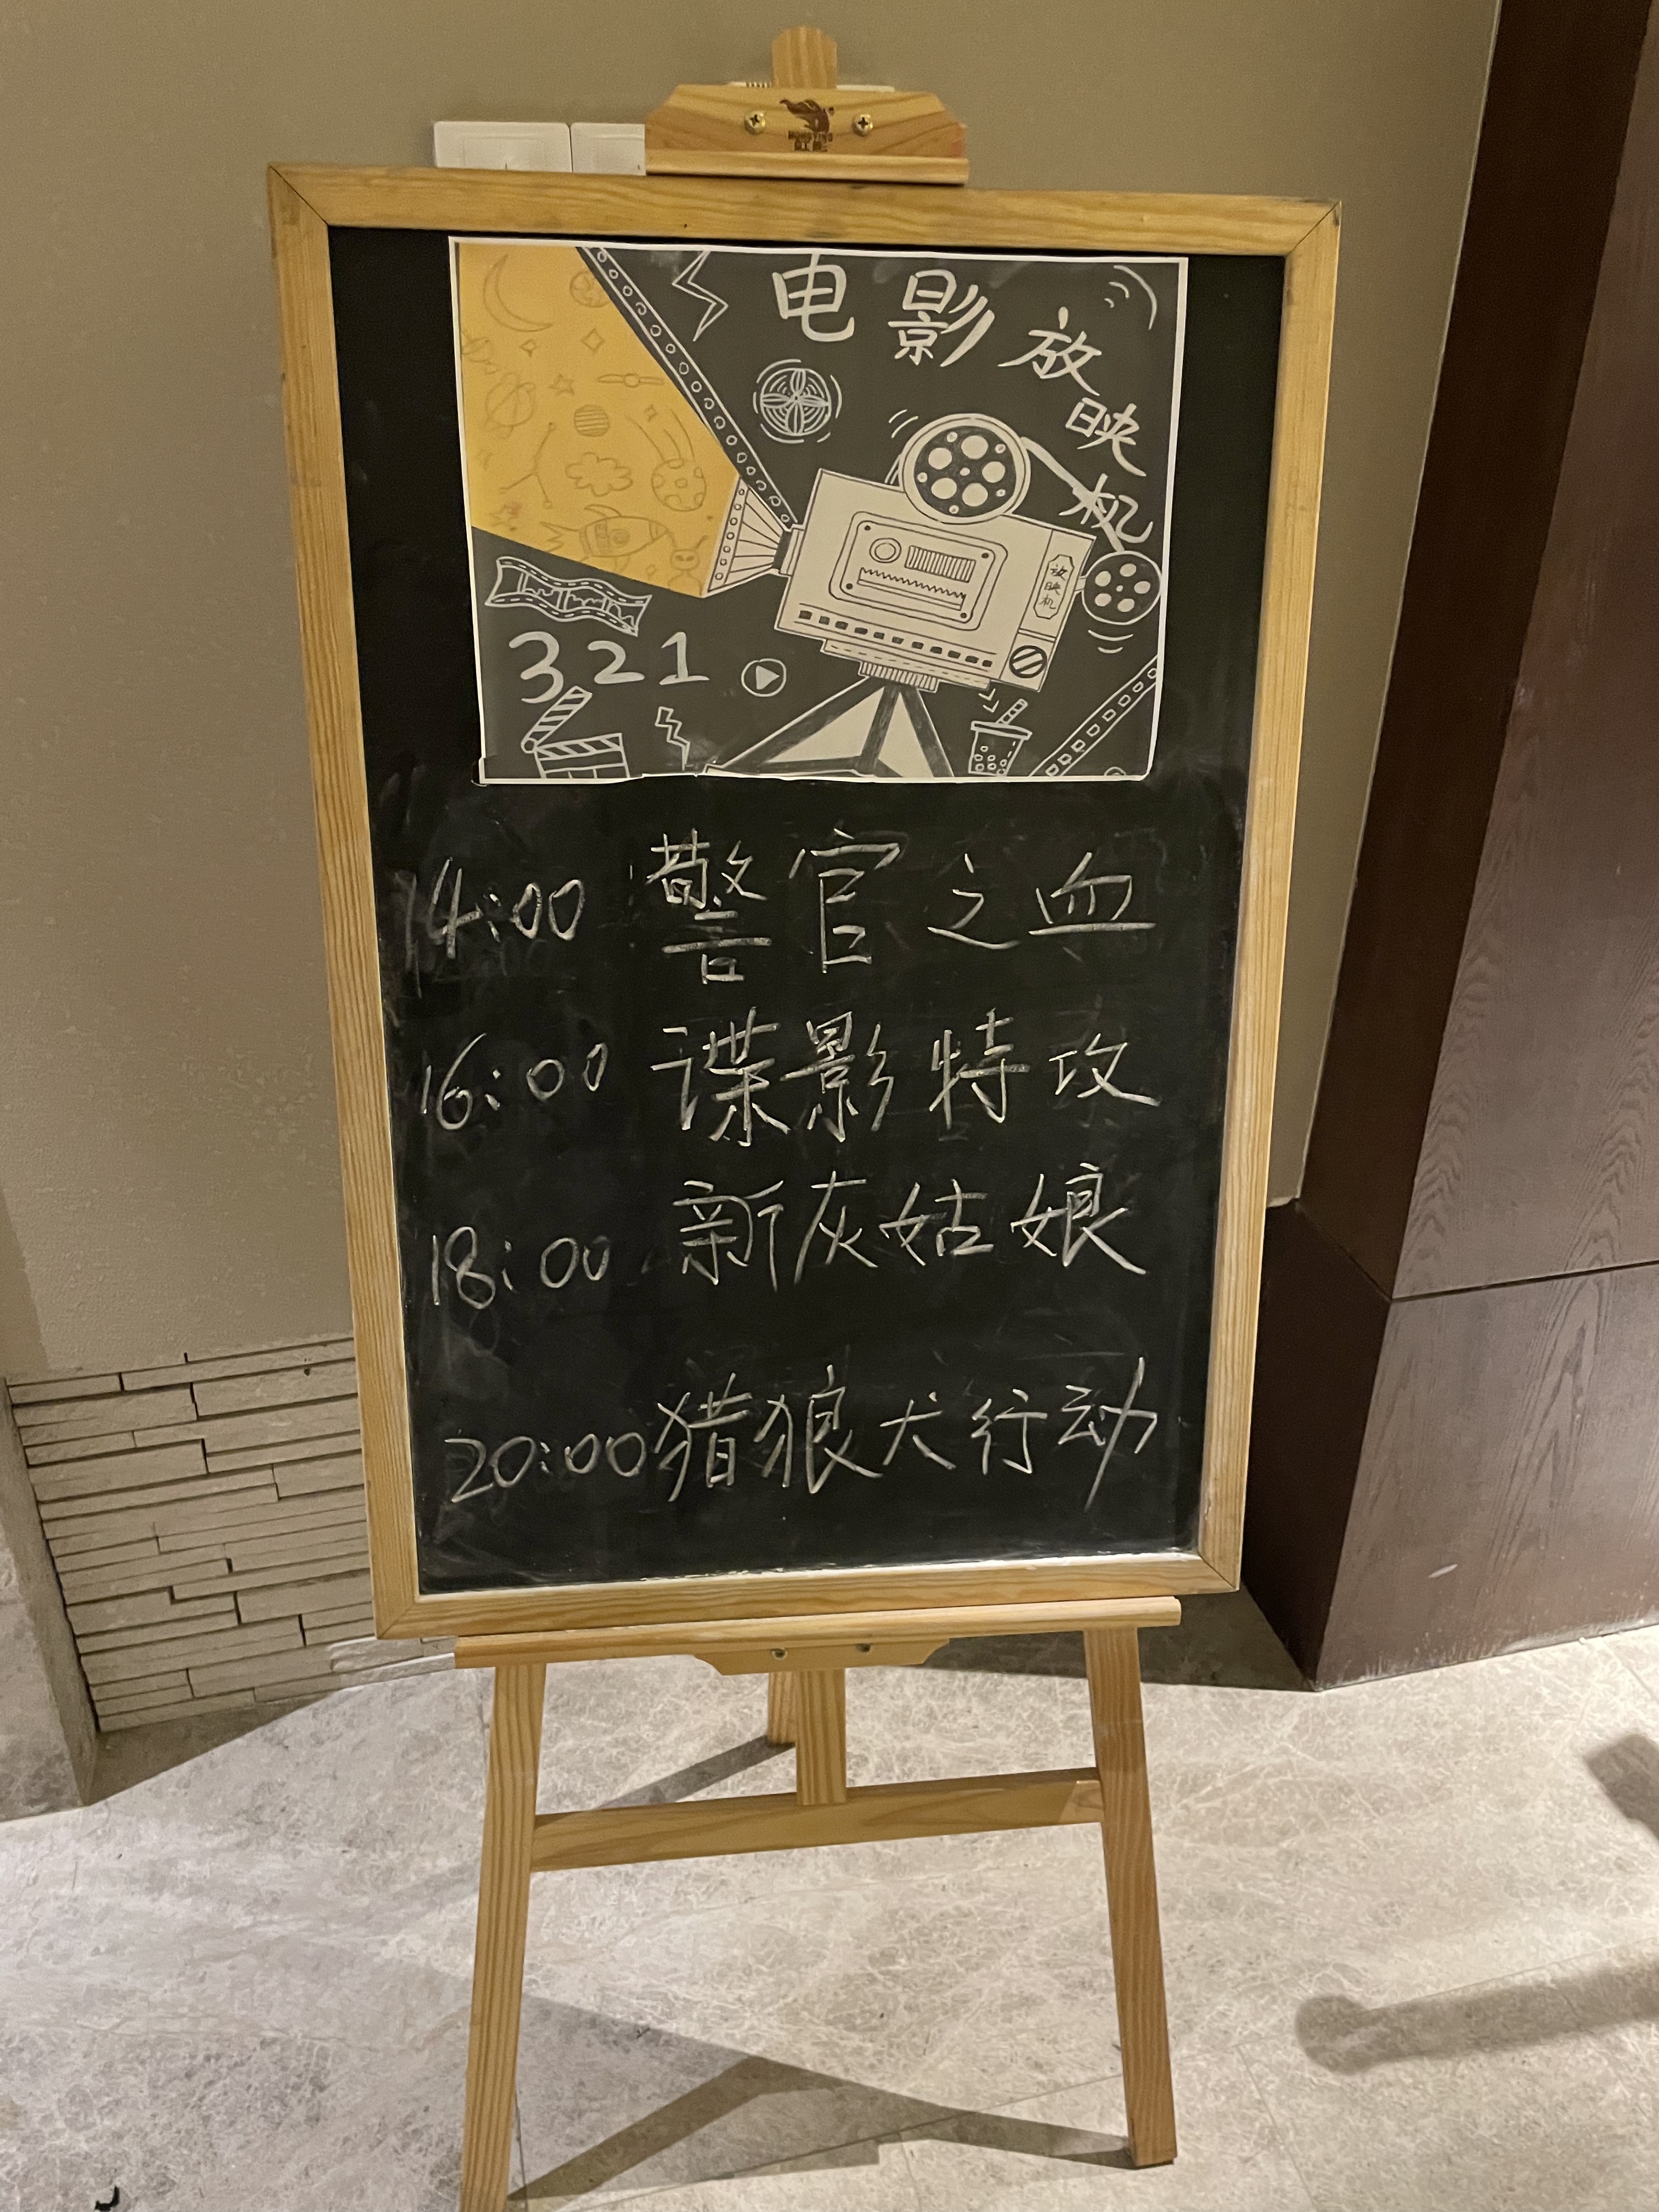 电影放映机
放映机
321
14:00 警官之血
16:00 谍影特攻
18:00 新灰姑娘
20:00 猎狼犬行动